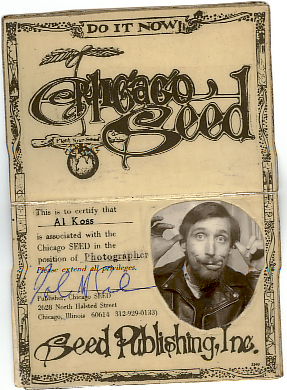 DO IT NOW!!
Chicago
Seed
This is to certify that
Al Koss
is associated with the
Chicago SEED in the
position of Photographer
Please extend all privileges.
Publisher, Chicago SEED
2628 North Halsted Street
Chicago, Illinois 60614 312-929-0133)
Seed Publishing, Inc.